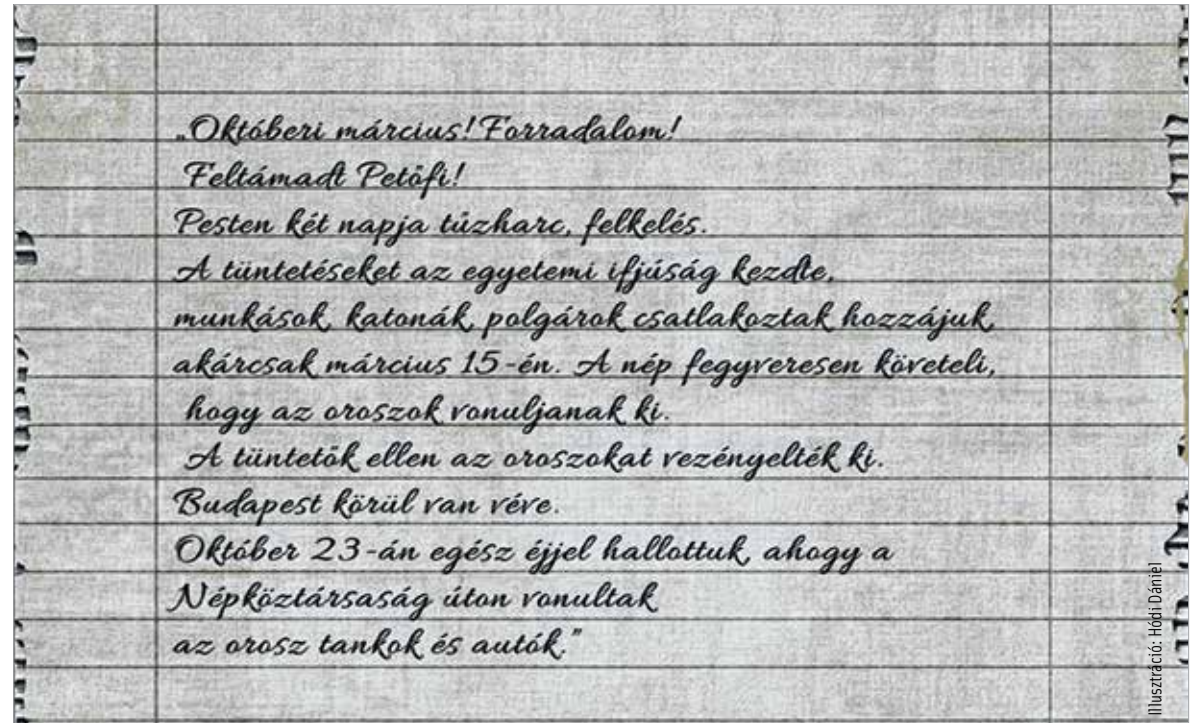 „Októberi március! Forradalom!
Feltámadt Petőfi!
Pesten két napja tűzharc, felkelés.
A tüntetéseket az egyetemi ifjúság kezdte,
munkások, katonák, polgárok csatlakoztak hozzájuk,
akárcsak március 15-én. A nép fegyveresen követeli,
hogy az oroszok vonuljanak ki.
A tüntetők ellen az oroszokat vezényelték ki.
Budapest körül van véve.
Október 23-án egész éjjel hallottuk, ahogy a
Népköztársaság úton vonultak
az orosz tankok és autók.”
Illusztráció: Hódi Dániel